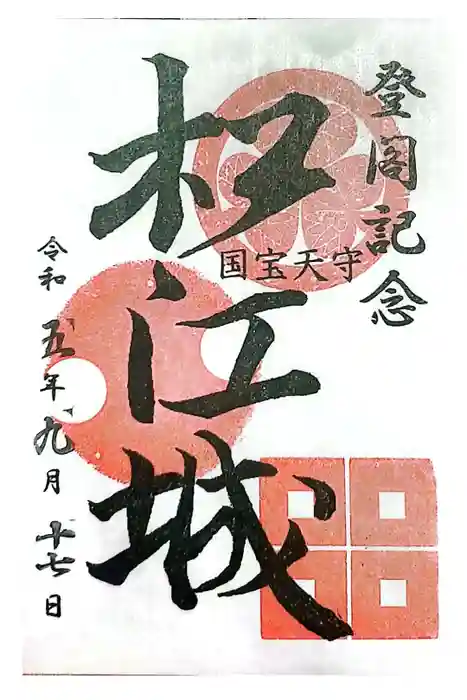 登閣記念
国宝天守
松江城
令和五年九月十七日